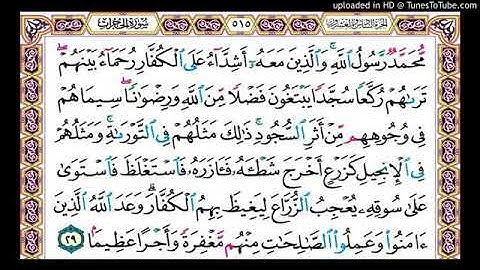 uploaded in HD @ TunesToTube.com
سورة الحجرات
٥١٥
الجزء السادس والعشرون
مُّحَمَّدٌ رَّسُولُ ٱللَّهِ وَٱلَّذِينَ مَعَهُۥٓ أَشِدَّآءُ عَلَى ٱلْكُفَّارِ رُحَمَآءُ بَيْنَهُمْ
تَرَىٰهُمْ رُكَّعًا سُجَّدًا يَبْتَغُونَ فَضْلًا مِّنَ ٱللَّهِ وَرِضْوَٰنًا سِيمَاهُمْ
فِى وُجُوهِهِم مِّنْ أَثَرِ ٱلسُّجُودِ ذَٰلِكَ مَثَلُهُمْ فِى ٱلتَّوْرَىٰةِ وَمَثَلُهُمْ
فِى ٱلْإِنجِيلِ كَزَرْعٍ أَخْرَجَ شَطْـَٔهُۥ فَـَٔازَرَهُۥ فَٱسْتَغْلَظَ فَٱسْتَوَىٰ
عَلَىٰ سُوقِهِۦ يُعْجِبُ ٱلزُّرَّاعَ لِيَغِيظَ بِهِمُ ٱلْكُفَّارَ وَعَدَ ٱللَّهُ ٱلَّذِينَ
ءَامَنُوا۟ وَعَمِلُوا۟ ٱلصَّٰلِحَٰتِ مِنْهُم مَّغْفِرَةً وَأَجْرًا عَظِيمًۢا ٢٩